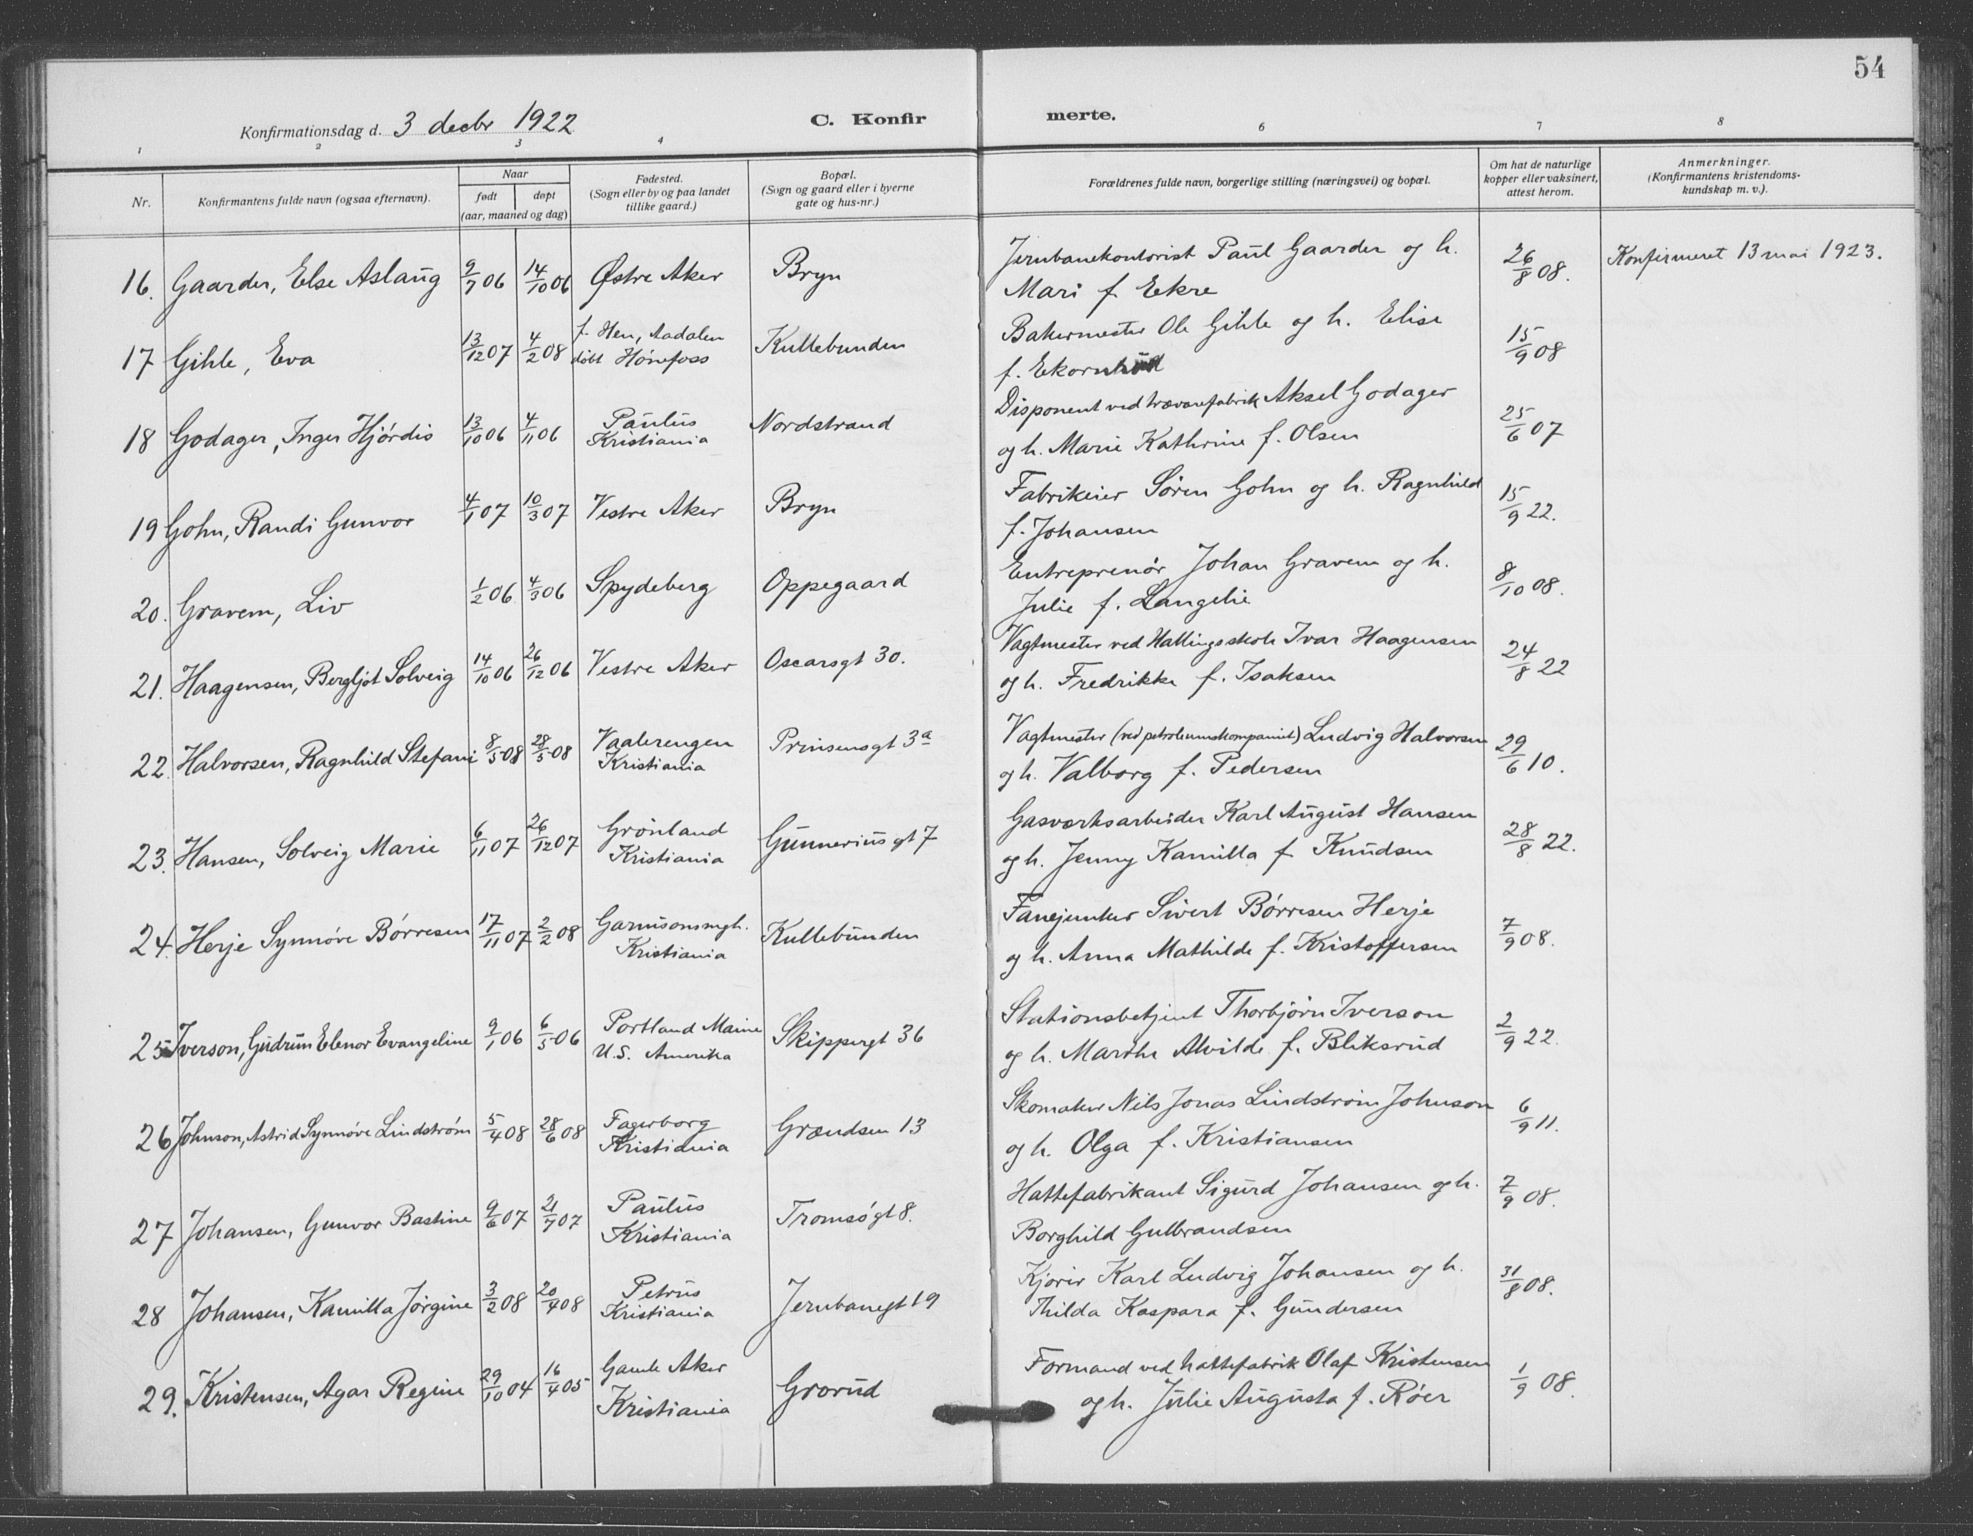 54
Konfirmationsdag d. 3 decbr 1922
C. Konfir
merte.
1 2 3 4 6 7 8
Nr.
Konfirmantens fulde navn (ogsaa efternavn).
Naar
født døpt
(aar, maaned og dag)
Fødested.
(Sogn eller by og paa landet
tillike gaard.)
Bopæl.
(Sogn og gaard eller i byerne
gate og hus-nr.)
Forældrenes fulde navn, borgerlige stilling (næringsvei) og bopæl.
Om hat de naturlige
kopper eller vaksinert,
attest herom.
Anmerkninger.
(Konfirmantens kristendoms-
kundskap m. v.).
16. Gaarder, Else Aslaug 9/7 06 14/10 06 Østre Aker Bryn
Jernbanekontorist Paul Gaarder og h. 26/8 08. Konfirmeret 13 mai 1923.
Mari f. Ekre
17 Gihle, Eva 13/12 07 4/2 08 f. Hen, Aadalen Kullebunden
døbt Hønefoss
Bakermester Ole Gihle og h. Elise 15/9 08
f.
18 Godager, Inger Hjørdis 13/10 06 4/11 06 Paulus Nordstrand
Kristiania
Disponent ved trævarefabrik Aksel Godager 25/6 07
og h. Marie Kathrine f. Olsen
19 Gohn, Randi Gunvor 4/1 07 10/3 07 Vestre Aker Bryn
Fabrikeier Søren Gohn og h. Ragnhild 15/9 22.
f. Johansen
20. Gravem, Liv 1/2 06 4/3 06 Spydeberg Oppegaard
Entreprenør Johan Gravem og h. 8/10 08.
Julie f. Langelie
21. Haagensen, Bergljot Solveig 14/10 06 26/12 06 Vestre Aker Oscarsgt 30.
Vagtmester ved Hallings skole Ivar Haagensen 24/8 22
og h. Fredrikke f. Isaksen
22. Halvorsen, Ragnhild Stefani 8/3 08 28/5 08 Vaalerengen Prinsensgt 3a
Kristiania
Vagtmester (ved petroleumskompaniet) Ludvig Halvorsen 29/6 10.
og h. Valborg f. Pedersen
23. Hansen, Solveig Marie 6/11 07 26/12 07 Grønland Gunneriusgt 7
Kristiania
Gasværksarbeider Karl August Hansen 28/8 22.
og h. Jenny Kamilla f. Knudsen
24. Herje Synnøve Børresen 17/11 07 2/2 08 Garnisonsmgh. Kullebunden
Kristiania
Fanejunker Sivert Børresen Herje 7/9 08.
og h. Anna Mathilde f. Kristoffersen
25 Iverson, Gudrun Elenor Evangeline 9/1 06 6/5 06 Portland Maine Skippergt 36
U.S. Amerika
Stationsbetjent Thorbjørn Iverson 2/9 22.
og h. Marthe Alvilde f. Bliksrud
26 Johnson, Astrid Synnøve Lindstrøm 5/4 08 28/6 08 Fagerborg Grændsen 13
Kristiania
Skomaker Nils Jonas Lindstrøm Johnson 6/9 11.
og h. Olga f. Kristiansen
27 Johansen, Gunvor Bastine 9/6 07 21/7 07 Paulus Tromsøgt 8.
Kristiania
Hattefabrikant Sigurd Johansen og h. 7/9 08.
Borghild Gulbrandsen
28 Johansen, Kamilla Jørgine 3/2 08 20/4 08 Petrus Jernbanegt 19
Kristiania
Kjører Karl Ludvig Johansen og h. 31/8 08.
Thilda Kaspara f. Gundersen
29. Kristensen, Agar Regine 29/10 04 16/4 05 Gamle Aker Grorud
Kristiania
Formand ved hattefabrik Olaf Kristensen 1/9 08.
og h. Julie Augusta f. Røer